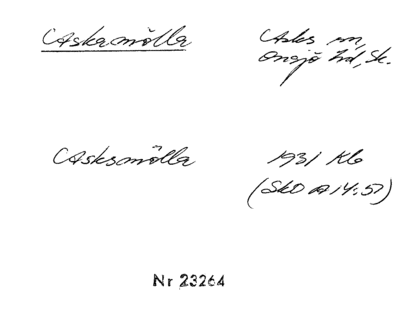 Askamölla Asks sn,
Onsjö hd, Sk.
Asksmölla 1931 Kb
(SkO A 14:57)
Nr 23264